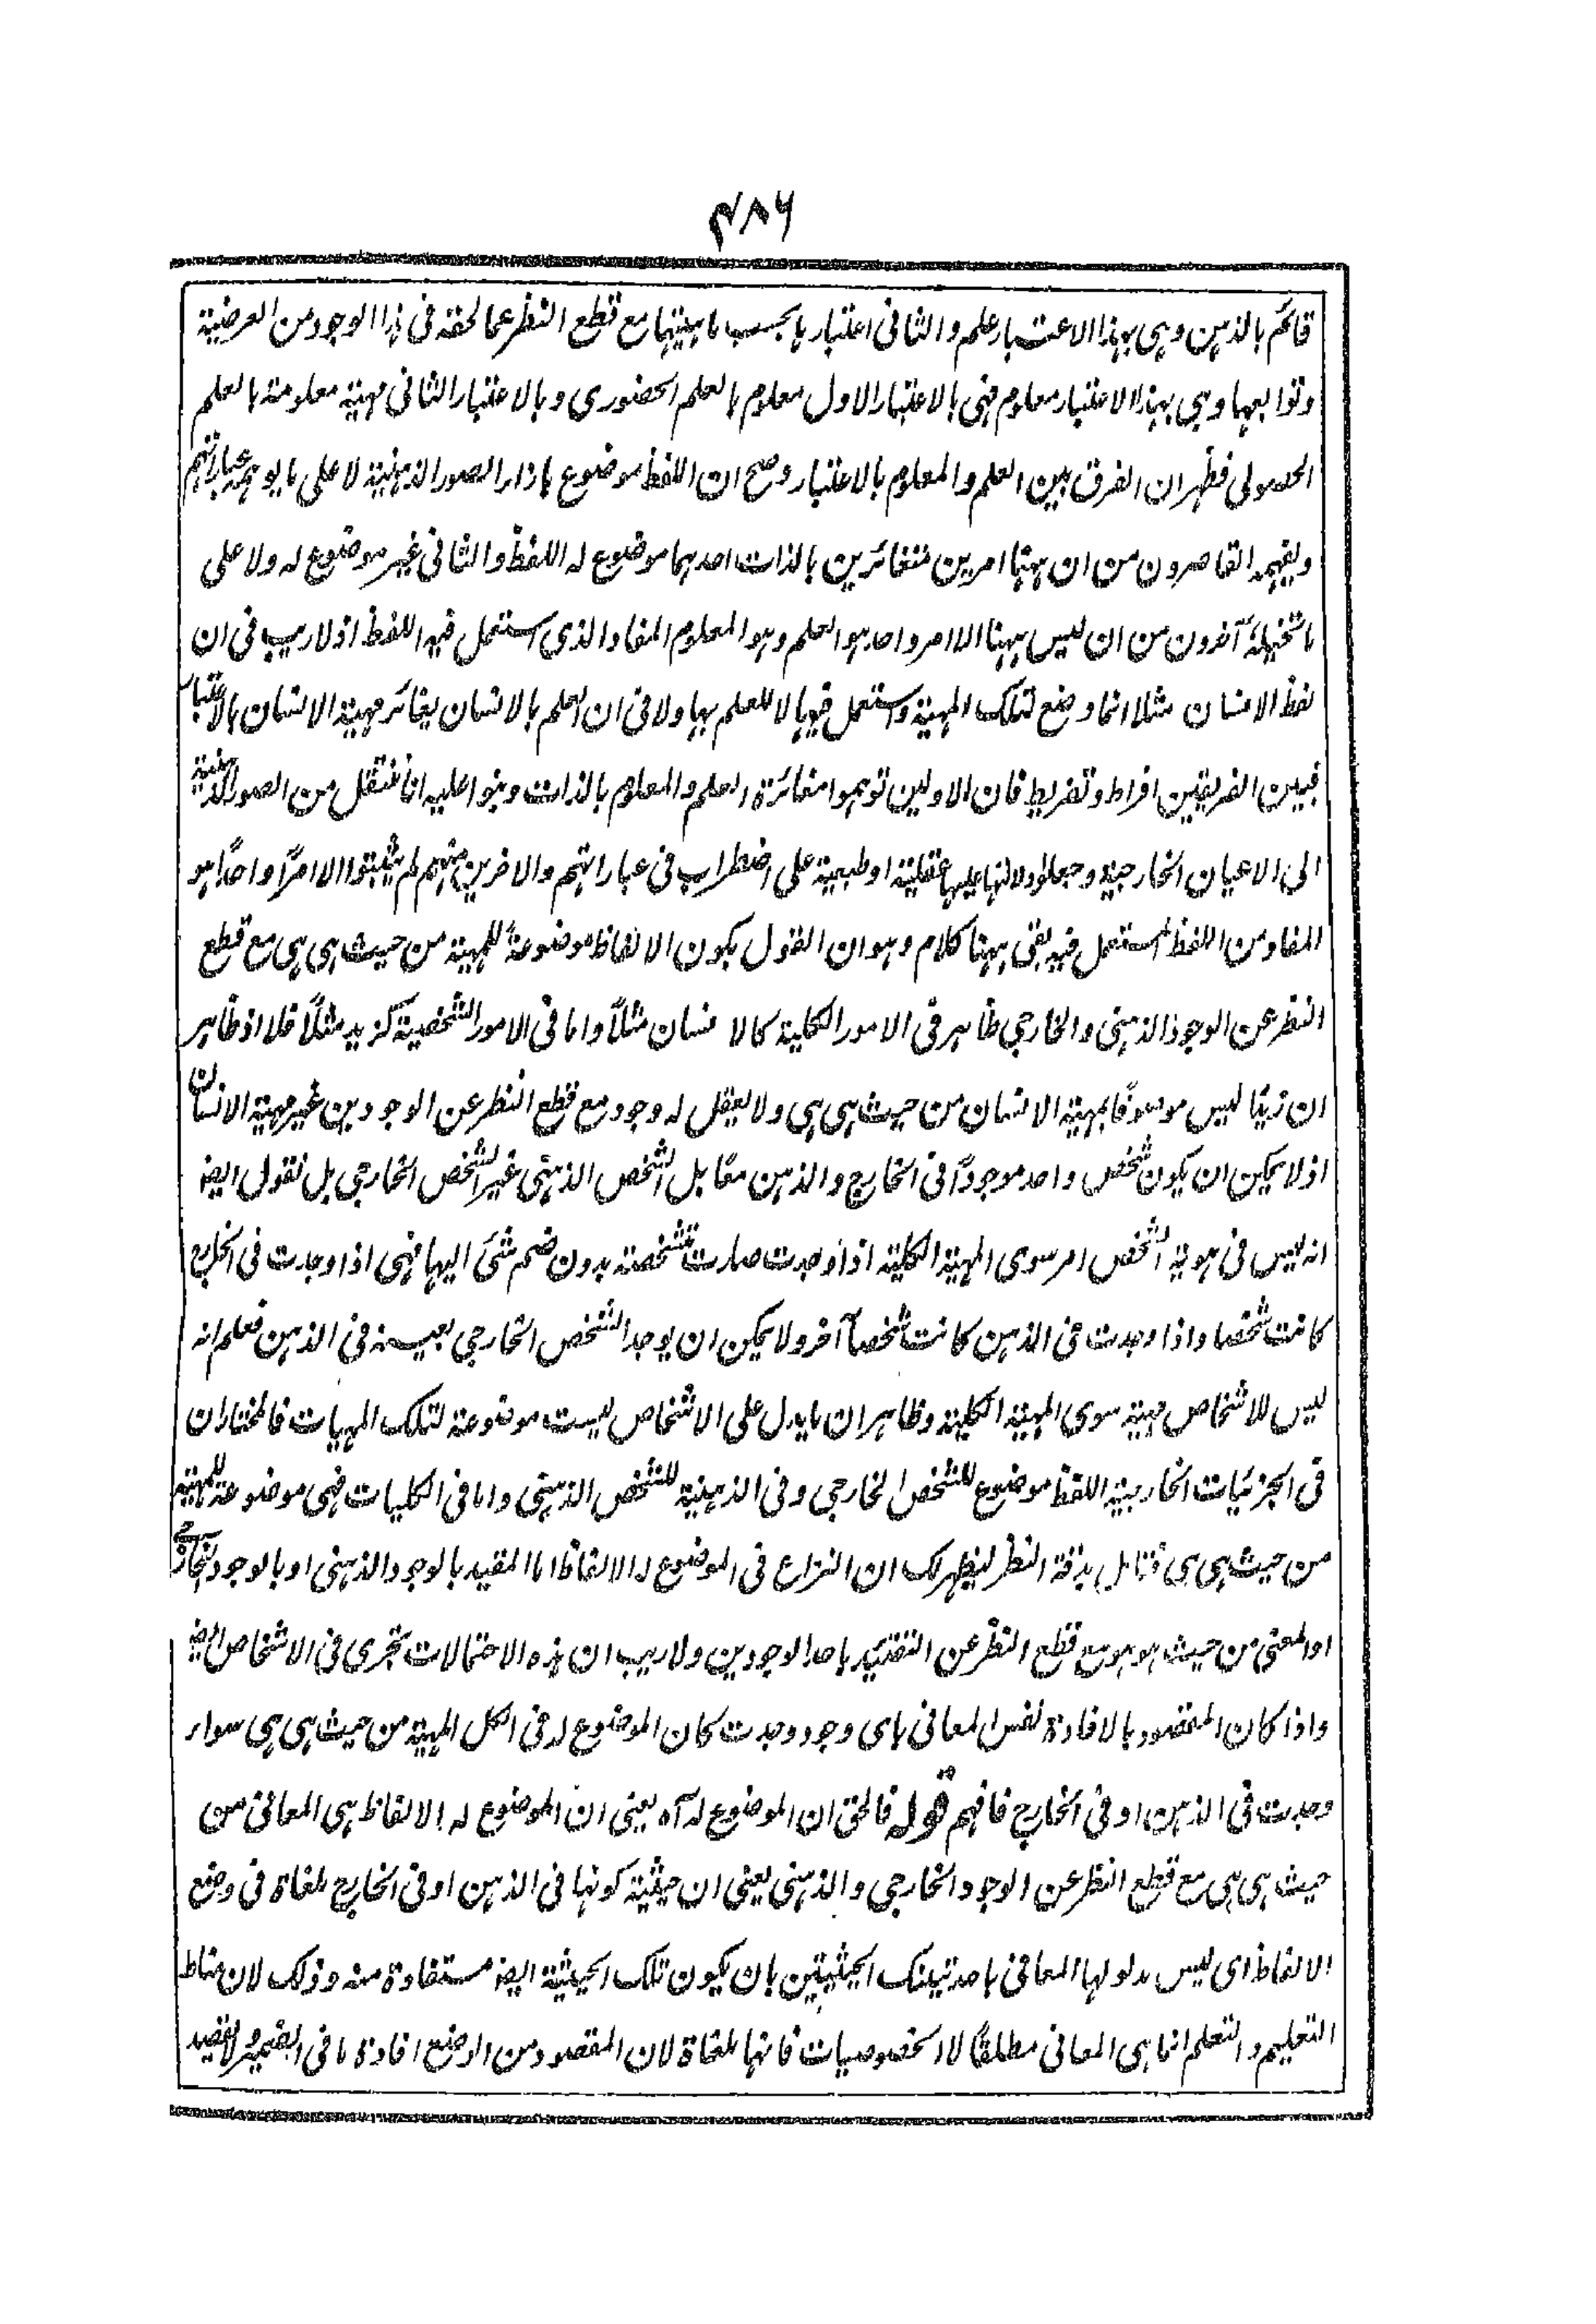 ۴۸۶
قائم بالذہن وہی بہذا الاعتبار علم والثانی اعتبارہا بحسب ماہیتہا مع قطع النظر عما لحقہ فی ہذا الوجود من العرضیۃ
وتوابعہا وہی بہذا الاعتبار معلوم فہی بالاعتبار الاول معلوم بالعلم الحضوری وبالاعتبار الثانی مہیۃ معلومۃ بالعلم
الحصولی فظہر ان الفرق بین العلم والمعلوم بالاعتبار وصح ان اللفظ موضوع بازاء الصور الذہنیۃ لا علی ما یوہمہ عباراتہم
ویفہمہ القاصرون من ان ہہنا امرین متغائرین بالذات احدہما موضوع لہ اللفظ والثانی غیر موضوع لہ ولا علی
ما تخیلہ آخرون من ان لیس ہہنا الا امر واحد ہو العلم وہو المعلوم المفاد الذی استعمل فیہ اللفظ اذ لا ریب فی ان
لفظ الانسان مثلا انما وضع لتلک المہیۃ واستعمل فیہا لا للعلم بہا ولا فی ان العلم بالانسان یغائر مہیۃ الانسان بالاعتبار
فبین الفریقین افراط وتفریط فان الاولین توہموا مغائرۃ العلم والمعلوم بالذات وبنوا علیہ انا ننتقل من الصور الذہنیۃ
الی الاعیان الخارجیۃ وجعلوا دلالتہا علیہا عقلیۃ او طبعیۃ علی اضطراب فی عباراتہم والاخرین منہم لم یثبتوا الا امرًا واحدًا ہو
المفاد من اللفظ المستعمل فیہ بقی ہہنا کلام وہو ان القول بکون الالفاظ موضوعۃً للمہیۃ من حیث ہی ہی مع قطع
النظر عن الوجود الذہنی والخارجی ظاہر فی الامور الکلیۃ کالانسان مثلًا واما فی الامور الشخصیۃ کزید مثلًا فلا اذ ظاہر
ان زیدًا لیس موضوعًا لمہیۃ الانسان من حیث ہی ہی ولا یعقل لہ وجود مع قطع النظر عن الوجودین غیر مہیۃ الانسان
اذ لا یمکن ان یکون شخص واحد موجودًا فی الخارج والذہن معًا بل الشخص الذہنی غیر الشخص الخارجی بل نقول ایضا
انہ لیس فی ہویۃ الشخص امر سوی المہیۃ الکلیۃ اذا وجدت صارت متشخصۃ بدون ضم شئ الیہا فہی اذا وجدت فی الخارج
کانت شخصا واذا وجدت فی الذہن کانت شخصًا آخر ولا یمکن ان یوجد الشخص الخارجی بعینہ فی الذہن فعلم انہ
لیس للاشخاص مہیۃ سوی المہیۃ الکلیۃ وظاہر ان ما یدل علی الاشخاص لیست موضوعۃ لتلک المہیات فالمختار ان
فی الجزئیات الخارجیۃ اللفظ موضوع للشخص الخارجی وفی الذہنیۃ للشخص الذہنی واما فی الکلیات فہی موضوعۃ للمہیۃ
من حیث ہی ہی فتامل بدقۃ النظر لیظہر لک ان النزاع فی الموضوع لہ الالفاظ اما المقید بالوجود الذہنی او بالوجود الخارجی
او المعنی من حیث ہو ہو مع قطع النظر عن التقئید باحد الوجودین ولا ریب ان ہذہ الاحتمالات تجری فی الاشخاص ایضا
واذا کان المقصود بالافادۃ نفس المعانی بای وجود وجدت کان الموضوع لہ فی الکل المہیۃ من حیث ہی ہی سواء
وجدت فی الذہن او فی الخارج فافہم قولہ فالحق ان الموضوع لہ آہ یعنی ان الموضوع لہ الالفاظ ہی المعانی من
حیث ہی ہی مع قطع النظر عن الوجود الخارجی والذہنی یعنی ان حیثیۃ کونہا فی الذہن او فی الخارج ملغاۃ فی وضع
الالفاظ ای لیس مدلولہا المعانی باحد تینک الحیثیتین بان یکون تلک الحیثیۃ ایضا مستفادۃ منہ وذلک لان مناط
التعلیم والتعلم انما ہی المعانی مطلقًا لا الخصوصیات فانہا ملغاۃ لان المقصود من الوضع افادۃ ما فی الضمیر